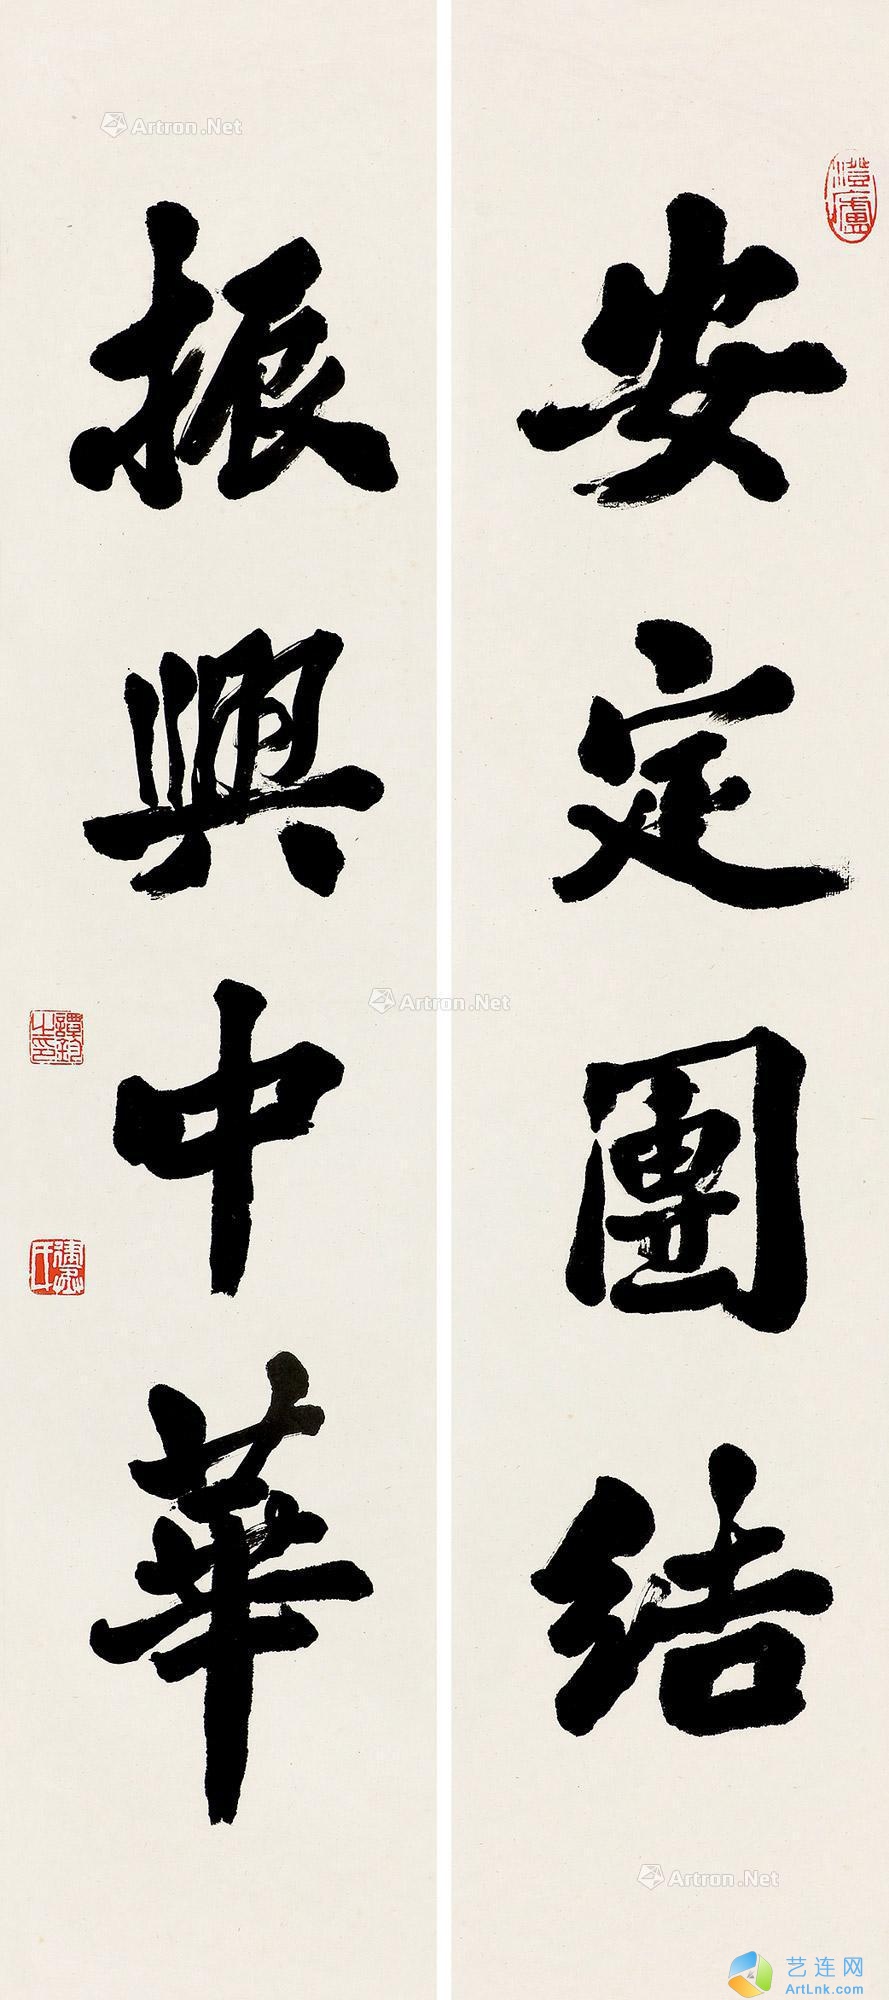 安定團结
振興中華
澄廬
譚銳之印
Artron.Net
Artron.Net
Artron.Net
艺连网
ArtLnk.com